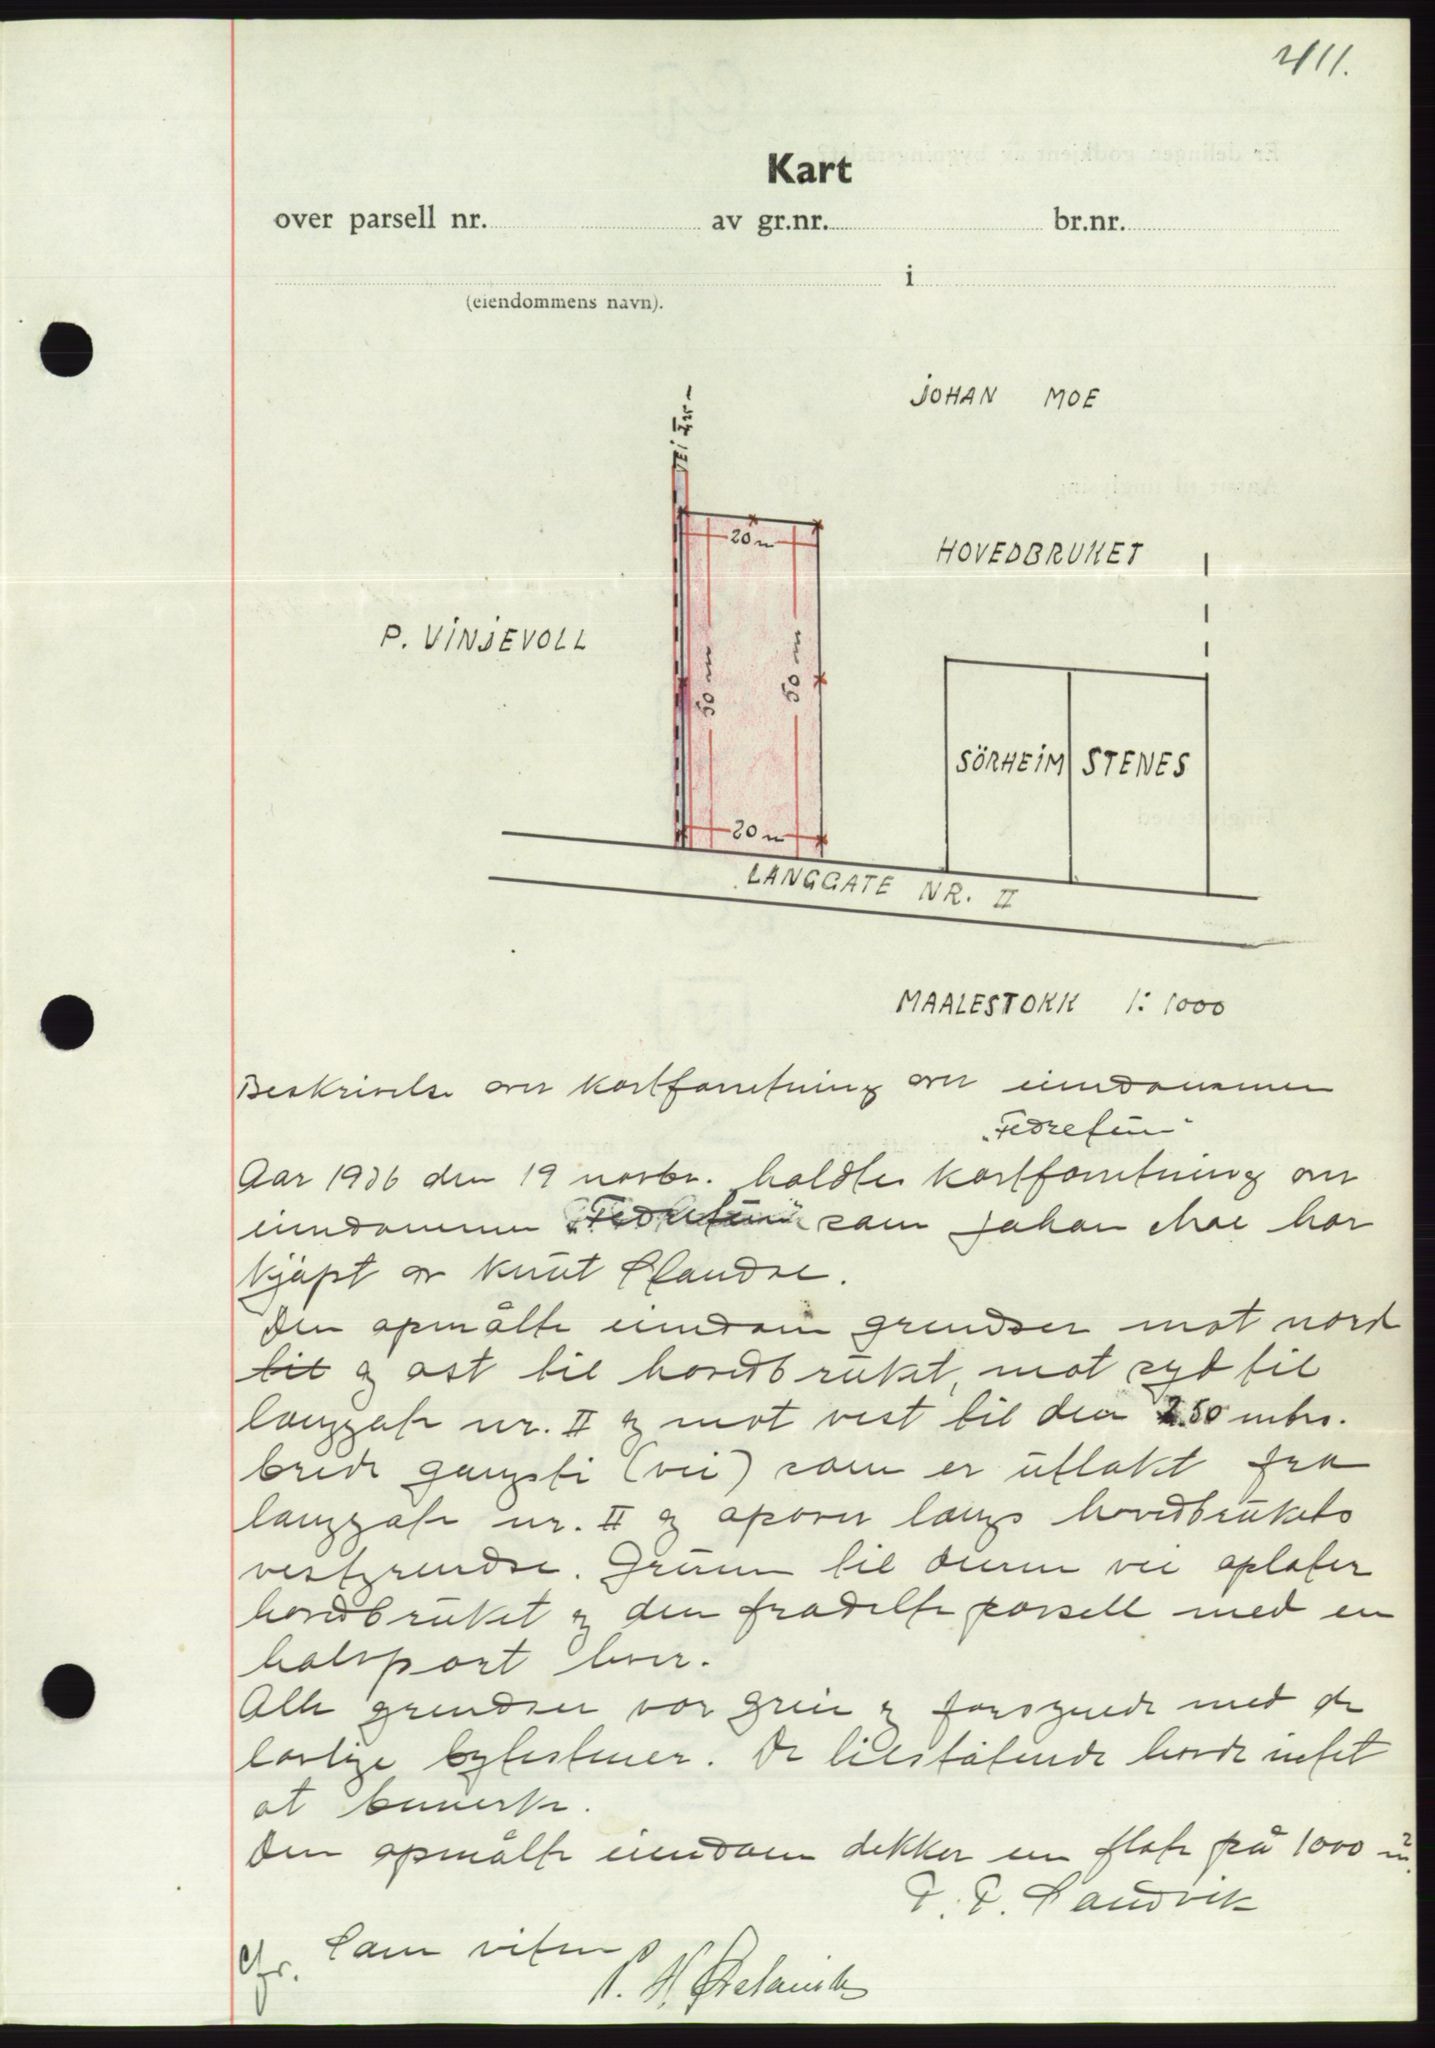 411.
Kart
over parsell nr. av gr.nr. br.nr.
i
(eiendommens navn).
JOHAN MOE
VEI
20 m
HOVEDBRUKET
P. VINJEVOLL
50 m 50 m
SÖRHEIM STENES
20 m
LANGGATE NR. II
MAALESTOKK 1:1000
Beskrivelse over kartforretning over eiendommen
"Fedretun"
Aar 1936 den 19 novbr. holdtes kartforretning over
eiendommen "Fedretun" som Johan Moe har
kjöpt av Knut
Den opmålte eiendom grendser mot nord
til og ost til hovedbruket, mot syd til
langgate nr. II og mot vest til den 2.50 mtrs.
brede gangsti (vei) som er utlakt fra
langgate nr. II og opover langs hovedbrukets
vestgrendse. Grunn til denne vei oplater
hovedbruket og den fradelte parsell med en
halvpart hver.
Alle grendser var greie og forsynede med de
lovlige bytestener. De tilstötende havde intet
at bemerke.
Den opmålte eiendom dekker en flate på 1000 m².
P. P. Sandvik
Som vitne
P. H.